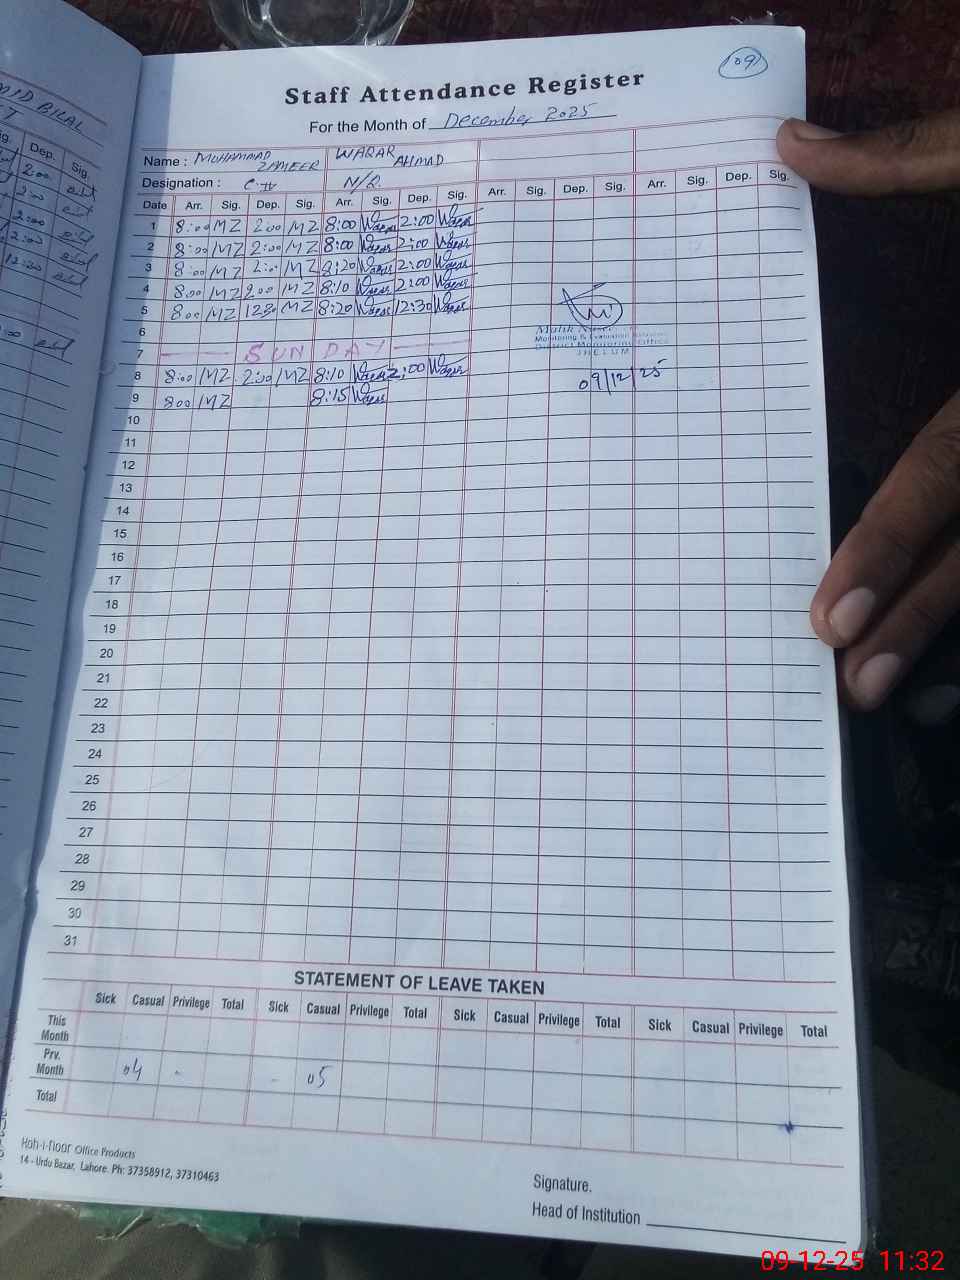 109
Staff Attendance Register
For the Month of December 2025
Name : MUHAMMAD ZAMEER WAQAR AHMAD
Designation : C-IV N/Q.
Date Arr. Sig. Dep. Sig. Arr. Sig. Dep. Sig. Arr. Sig. Dep. Sig. Arr. Sig. Dep. Sig.
1 8:00 MZ 2:00 MZ 8:00 Waqar 2:00 Waqar
2 8:00 MZ 2:00 MZ 8:00 Waqar 2:00 Waqar
3 8:00 MZ 2:00 MZ 8:20 Waqar 2:00 Waqar
4 8:00 MZ 2:00 MZ 8:10 Waqar 2:00 Waqar
5 8:00 MZ 12:30 MZ 8:20 Waqar 12:30 Waqar
6
7 SUNDAY
8 8:00 MZ 2:00 MZ 8:10 Waqar 2:00 Waqar
9 800 MZ 8:15 Waqar
10
11
12
13
14
15
16
17
18
19
20
21
22
23
24
25
26
27
28
29
30
31
Malik
Monitoring & Evaluation
District Monitoring Office
JHELUM
09/12/25
STATEMENT OF LEAVE TAKEN
Sick Casual Privilege Total Sick Casual Privilege Total Sick Casual Privilege Total Sick Casual Privilege Total
This Month
Prv. Month 04 - - 05
Total
Koh-i-noor Office Products
14 - Urdu Bazar, Lahore. Ph: 37358912, 37310463
Signature.
Head of Institution
MID BILAL
Sig. Dep. Sig.
2:00
2:00
2:00
2:00
12:30
:00
09-12-25 11:32